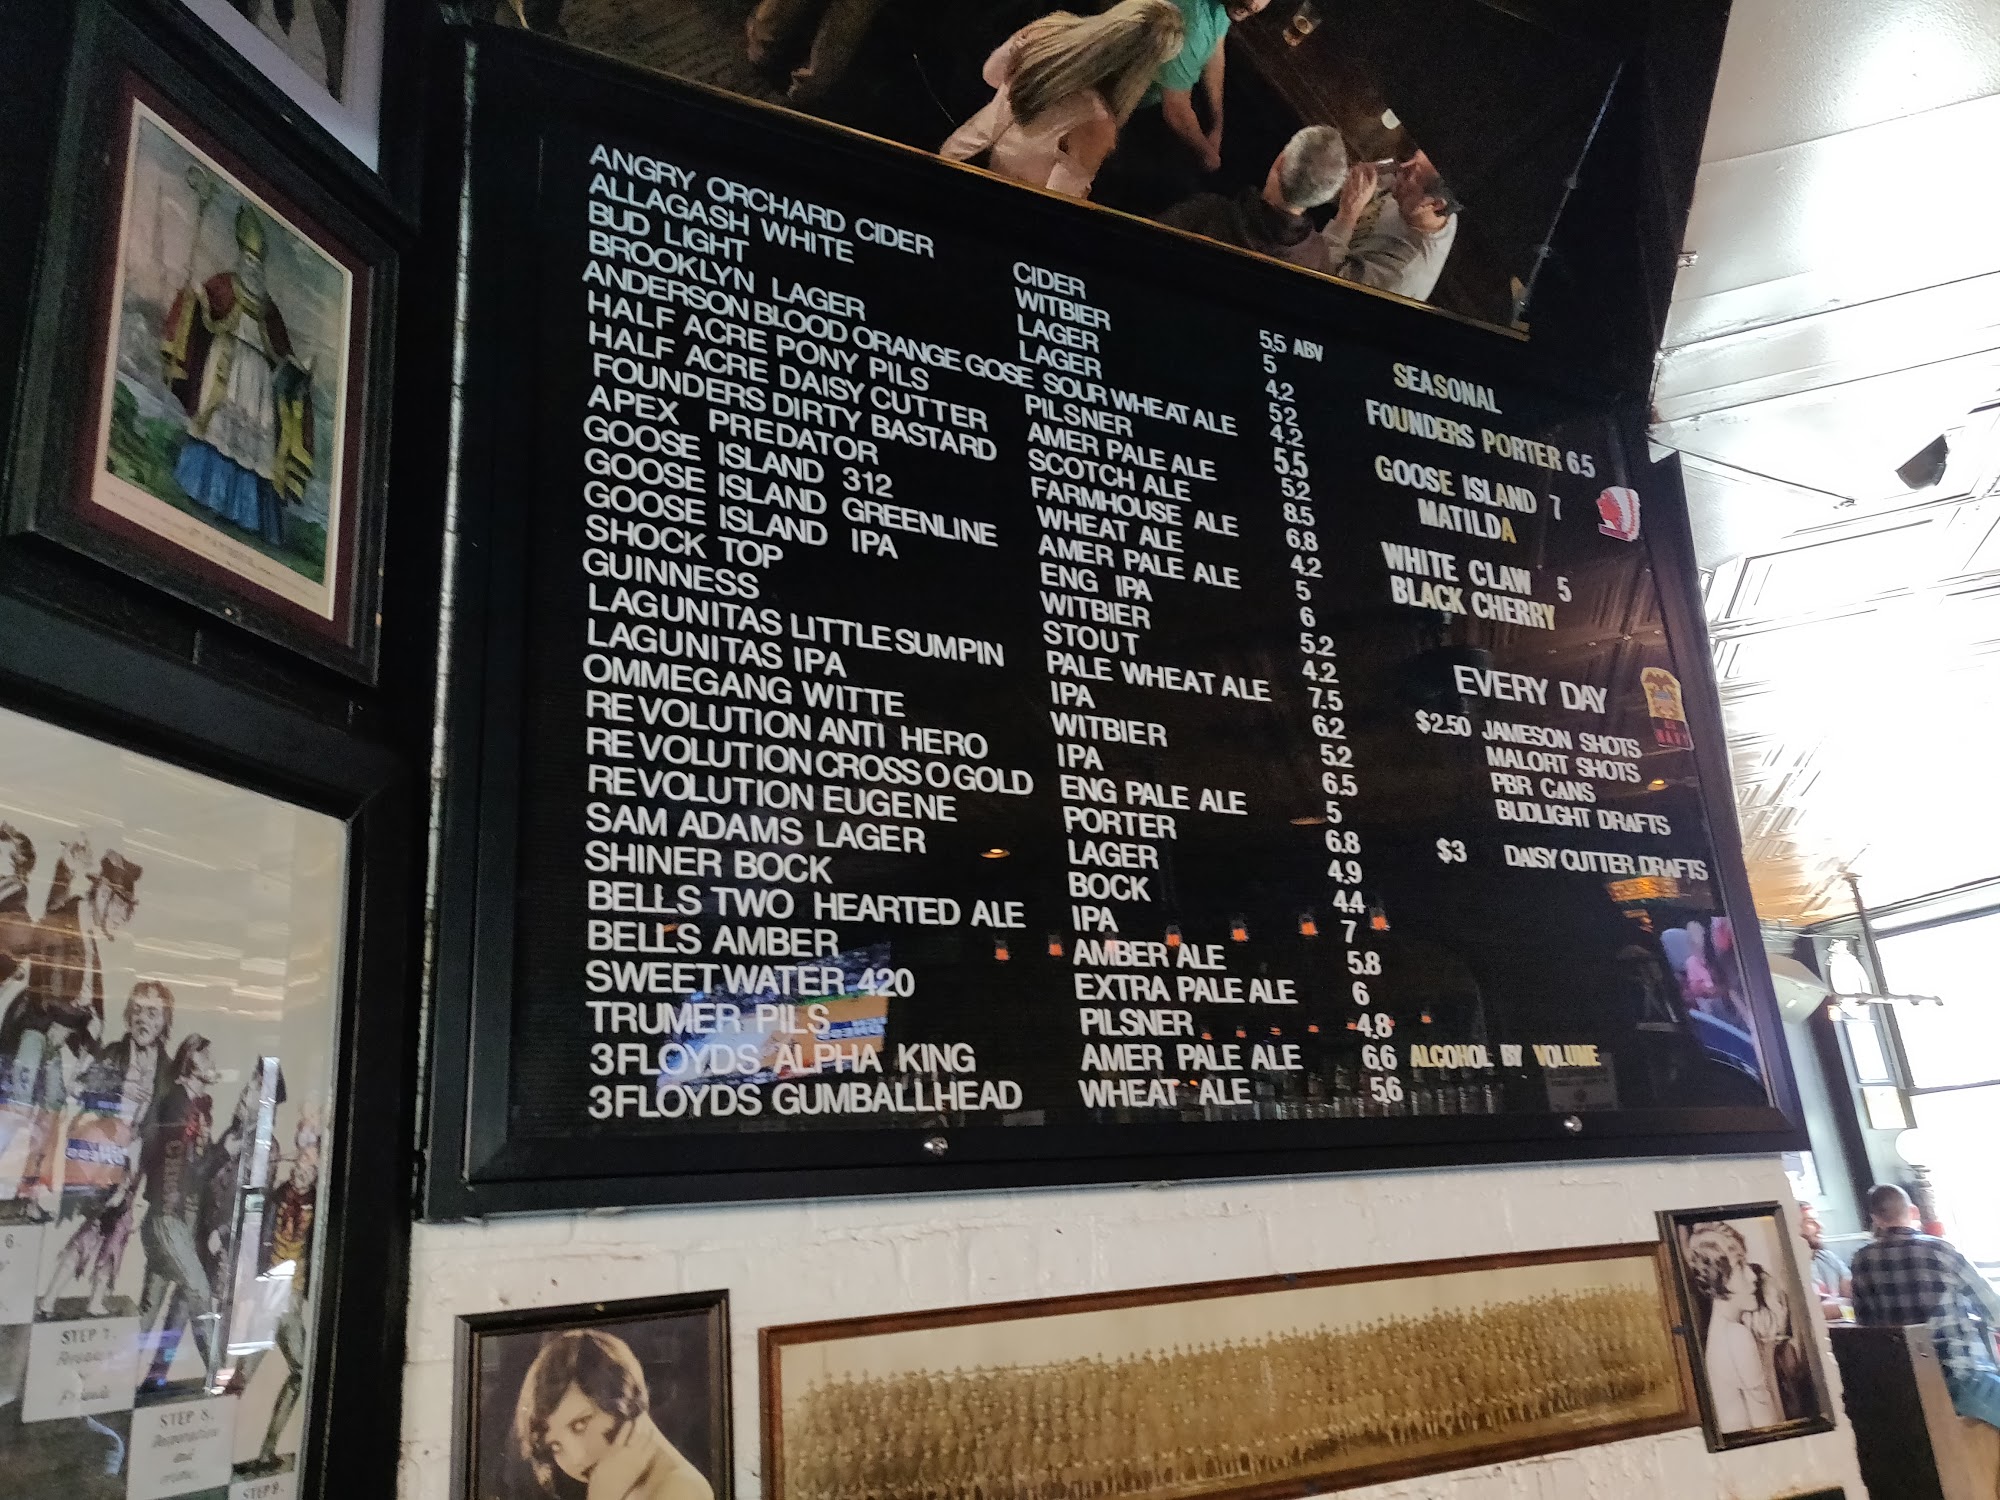 ANGRY ORCHARD CIDER CIDER 5.5 ABV
ALLAGASH WHITE WITBIER 5
BUD LIGHT LAGER 4.2
BROOKLYN LAGER LAGER 5.2
ANDERSON BLOOD ORANGE GOSE SOUR WHEAT ALE 4.2
HALF ACRE PONY PILS PILSNER 5.5
HALF ACRE DAISY CUTTER AMER PALE ALE 5.2
FOUNDERS DIRTY BASTARD SCOTCH ALE 8.5
APEX PREDATOR FARMHOUSE ALE 6.8
GOOSE ISLAND 312 WHEAT ALE 4.2
GOOSE ISLAND GREENLINE AMER PALE ALE 5
GOOSE ISLAND IPA ENG IPA 6
SHOCK TOP WITBIER 5.2
GUINNESS STOUT 4.2
LAGUNITAS LITTLE SUMPIN PALE WHEAT ALE 7.5
LAGUNITAS IPA IPA 6.2
OMMEGANG WITTE WITBIER 5.2
REVOLUTION ANTI HERO IPA 6.5
REVOLUTION CROSS O GOLD ENG PALE ALE 5
REVOLUTION EUGENE PORTER 6.8
SAM ADAMS LAGER LAGER 4.9
SHINER BOCK BOCK 4.4
BELLS TWO HEARTED ALE IPA 7
BELLS AMBER AMBER ALE 5.8
SWEETWATER 420 EXTRA PALE ALE 6
TRUMER PILS PILSNER 4.8
3 FLOYDS ALPHA KING AMER PALE ALE 6.6 ALCOHOL BY VOLUME
3 FLOYDS GUMBALLHEAD WHEAT ALE 5.6
SEASONAL
FOUNDERS PORTER 6.5
GOOSE ISLAND 7
MATILDA
WHITE CLAW 5
BLACK CHERRY
EVERY DAY
$2.50 JAMESON SHOTS
MALORT SHOTS
PBR CANS
BUDLIGHT DRAFTS
$3 DAISY CUTTER DRAFTS
6.
STEP 7.
STEP 8.
STEP 9.